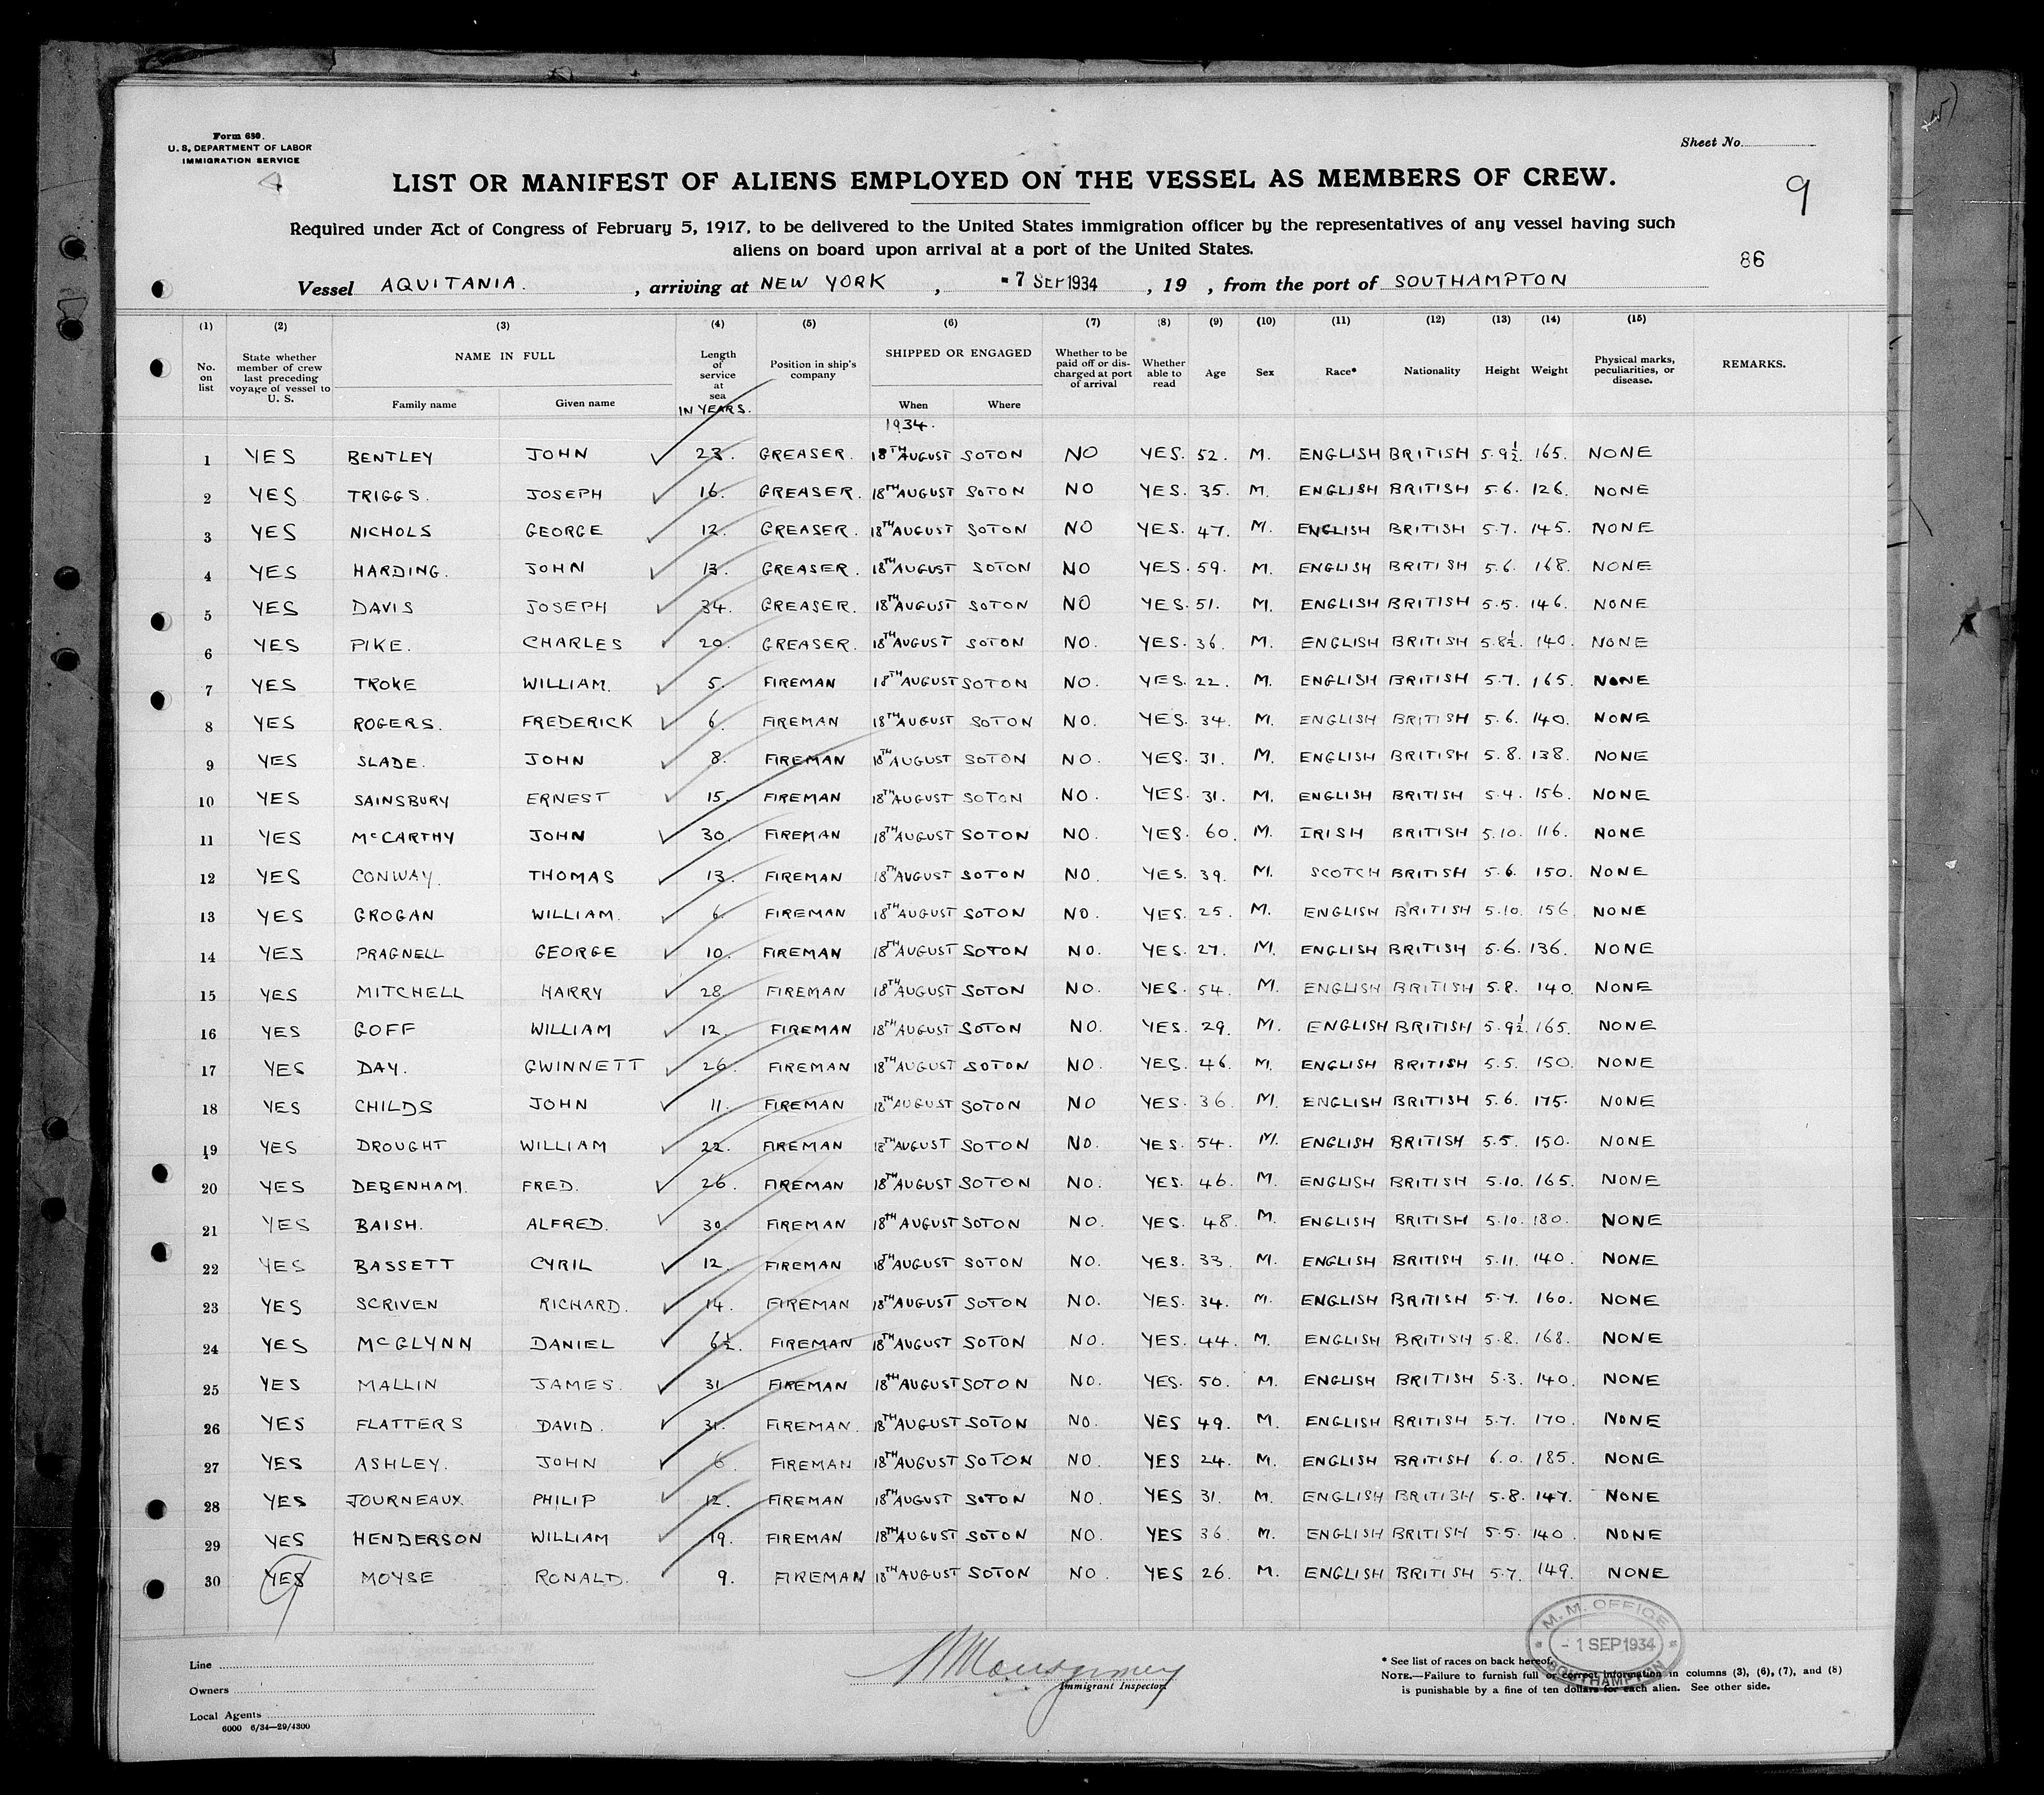 Form 680.
U. S. DEPARTMENT OF LABOR
IMMIGRATION SERVICE
Sheet No.
LIST OR MANIFEST OF ALIENS EMPLOYED ON THE VESSEL AS MEMBERS OF CREW.
9
Required under Act of Congress of February 5, 1917, to be delivered to the United States immigration officer by the representatives of any vessel having such
aliens on board upon arrival at a port of the United States.
86
Vessel AQUITANIA. , arriving at NEW YORK , - 7 SEP 1934 , 19 , from the port of SOUTHAMPTON
(1) (2) (3) (4) (5) (6) (7) (8) (9) (10) (11) (12) (13) (14) (15)
No. on list State whether member of crew last preceding voyage of vessel to U. S. NAME IN FULL Family name Given name Length of service at sea IN YEARS. Position in ship's company SHIPPED OR ENGAGED When Where Whether to be paid off or discharged at port of arrival Whether able to read Age Sex Race* Nationality Height Weight Physical marks, peculiarities, or disease. REMARKS.
1934.
1 YES BENTLEY JOHN 23. GREASER. 18TH AUGUST SOTON NO YES. 52. M. ENGLISH BRITISH 5.9½ 165. NONE
2 YES TRIGGS. JOSEPH 16. GREASER. 18TH AUGUST SOTON NO YES. 35. M. ENGLISH BRITISH 5.6. 126. NONE
3 YES NICHOLS GEORGE 12. GREASER. 18TH AUGUST SOTON NO YES. 47. M. ENGLISH BRITISH 5.7. 145. NONE
4 YES HARDING. JOHN 13. GREASER. 18TH AUGUST SOTON NO YES. 59. M. ENGLISH BRITISH 5.6. 168. NONE
5 YES DAVIS JOSEPH 34. GREASER. 18TH AUGUST SOTON NO YES. 51. M. ENGLISH BRITISH 5.5. 146. NONE
6 YES PIKE. CHARLES 20. GREASER. 18TH AUGUST SOTON NO. YES. 36. M. ENGLISH BRITISH 5.8½. 140. NONE
7 YES TROKE WILLIAM. 5. FIREMAN 18TH AUGUST SOTON NO. YES. 22. M. ENGLISH BRITISH 5.7. 165. NONE
8 YES ROGERS. FREDERICK 6. FIREMAN 18TH AUGUST SOTON NO. YES. 34. M. ENGLISH BRITISH 5.6. 140. NONE
9 YES SLADE. JOHN 8. FIREMAN 18TH AUGUST SOTON NO. YES. 31. M. ENGLISH BRITISH 5.8. 138. NONE
10 YES SAINSBURY ERNEST 15. FIREMAN 18TH AUGUST SOTON NO. YES. 31. M. ENGLISH BRITISH 5.4. 156. NONE
11 YES McCARTHY JOHN 30. FIREMAN 18TH AUGUST SOTON NO. YES. 60. M. IRISH BRITISH 5.10. 116. NONE
12 YES CONWAY. THOMAS 13. FIREMAN 18TH AUGUST SOTON NO. YES. 39. M. SCOTCH BRITISH 5.6. 150. NONE
13 YES GROGAN WILLIAM. 6. FIREMAN 18TH AUGUST SOTON NO. YES. 25. M. ENGLISH BRITISH 5.10. 156 NONE
14 YES PRAGNELL GEORGE 10. FIREMAN 18TH AUGUST SOTON NO. YES. 27. M. ENGLISH BRITISH 5.6. 136. NONE
15 YES MITCHELL HARRY 28. FIREMAN 18TH AUGUST SOTON NO. YES. 54. M. ENGLISH BRITISH 5.8. 140. NONE
16 YES GOFF WILLIAM 12. FIREMAN 18TH AUGUST SOTON NO. YES. 29. M. ENGLISH BRITISH 5.9½. 165. NONE
17 YES DAY. GWINNETT 26. FIREMAN 18TH AUGUST SOTON NO. YES. 46. M. ENGLISH BRITISH 5.5. 150. NONE
18 YES CHILDS JOHN 11. FIREMAN 18TH AUGUST SOTON NO YES. 36. M. ENGLISH BRITISH 5.6. 175. NONE
19 YES DROUGHT WILLIAM 22. FIREMAN 18TH AUGUST SOTON NO. YES. 54. M. ENGLISH BRITISH 5.5. 150. NONE
20 YES DEBENHAM. FRED. 26. FIREMAN 18TH AUGUST SOTON NO. YES. 46. M. ENGLISH BRITISH 5.10. 165. NONE
21 YES BAISH. ALFRED. 30. FIREMAN 18TH AUGUST SOTON NO. YES. 48. M. ENGLISH BRITISH 5.10. 180. NONE
22 YES BASSETT CYRIL 12. FIREMAN 18TH AUGUST SOTON NO. YES. 33. M. ENGLISH BRITISH 5.11. 140. NONE
23 YES SCRIVEN RICHARD. 14. FIREMAN 18TH AUGUST SOTON NO. YES. 34. M. ENGLISH BRITISH 5.7. 160. NONE
24 YES McGLYNN DANIEL 6½. FIREMAN 18TH AUGUST SOTON NO. YES. 44. M. ENGLISH BRITISH 5.8. 168. NONE
25 YES MALLIN JAMES. 31. FIREMAN 18TH AUGUST SOTON NO. YES. 50. M. ENGLISH BRITISH 5.3. 140. NONE
26 YES FLATTERS DAVID. 31. FIREMAN. 18TH AUGUST SOTON NO. YES 49. M. ENGLISH BRITISH 5.7. 170. NONE
27 YES ASHLEY. JOHN 6. FIREMAN 18TH AUGUST SOTON NO. YES 24. M. ENGLISH BRITISH 6.0. 185. NONE
28 YES JOURNEAUX. PHILIP 12. FIREMAN 18TH AUGUST SOTON NO. YES 31. M. ENGLISH BRITISH 5.8. 147. NONE
29 YES HENDERSON WILLIAM 19. FIREMAN 18TH AUGUST SOTON NO. YES 36. M. ENGLISH BRITISH 5.5. 140. NONE
30 YES MOYSE RONALD. 9. FIREMAN 18TH AUGUST SOTON NO. YES 26. M. ENGLISH BRITISH 5.7. 149. NONE
M. M. OFFICE
- 1 SEP 1934
SOUTHAMPTON
Line
Owners
Local Agents
6000 6/34—29/4300
Montgomery
Immigrant Inspector
* See list of races on back hereof.
NOTE.—Failure to furnish full or correct information in columns (3), (6), (7), and (8)
is punishable by a fine of ten dollars for each alien. See other side.